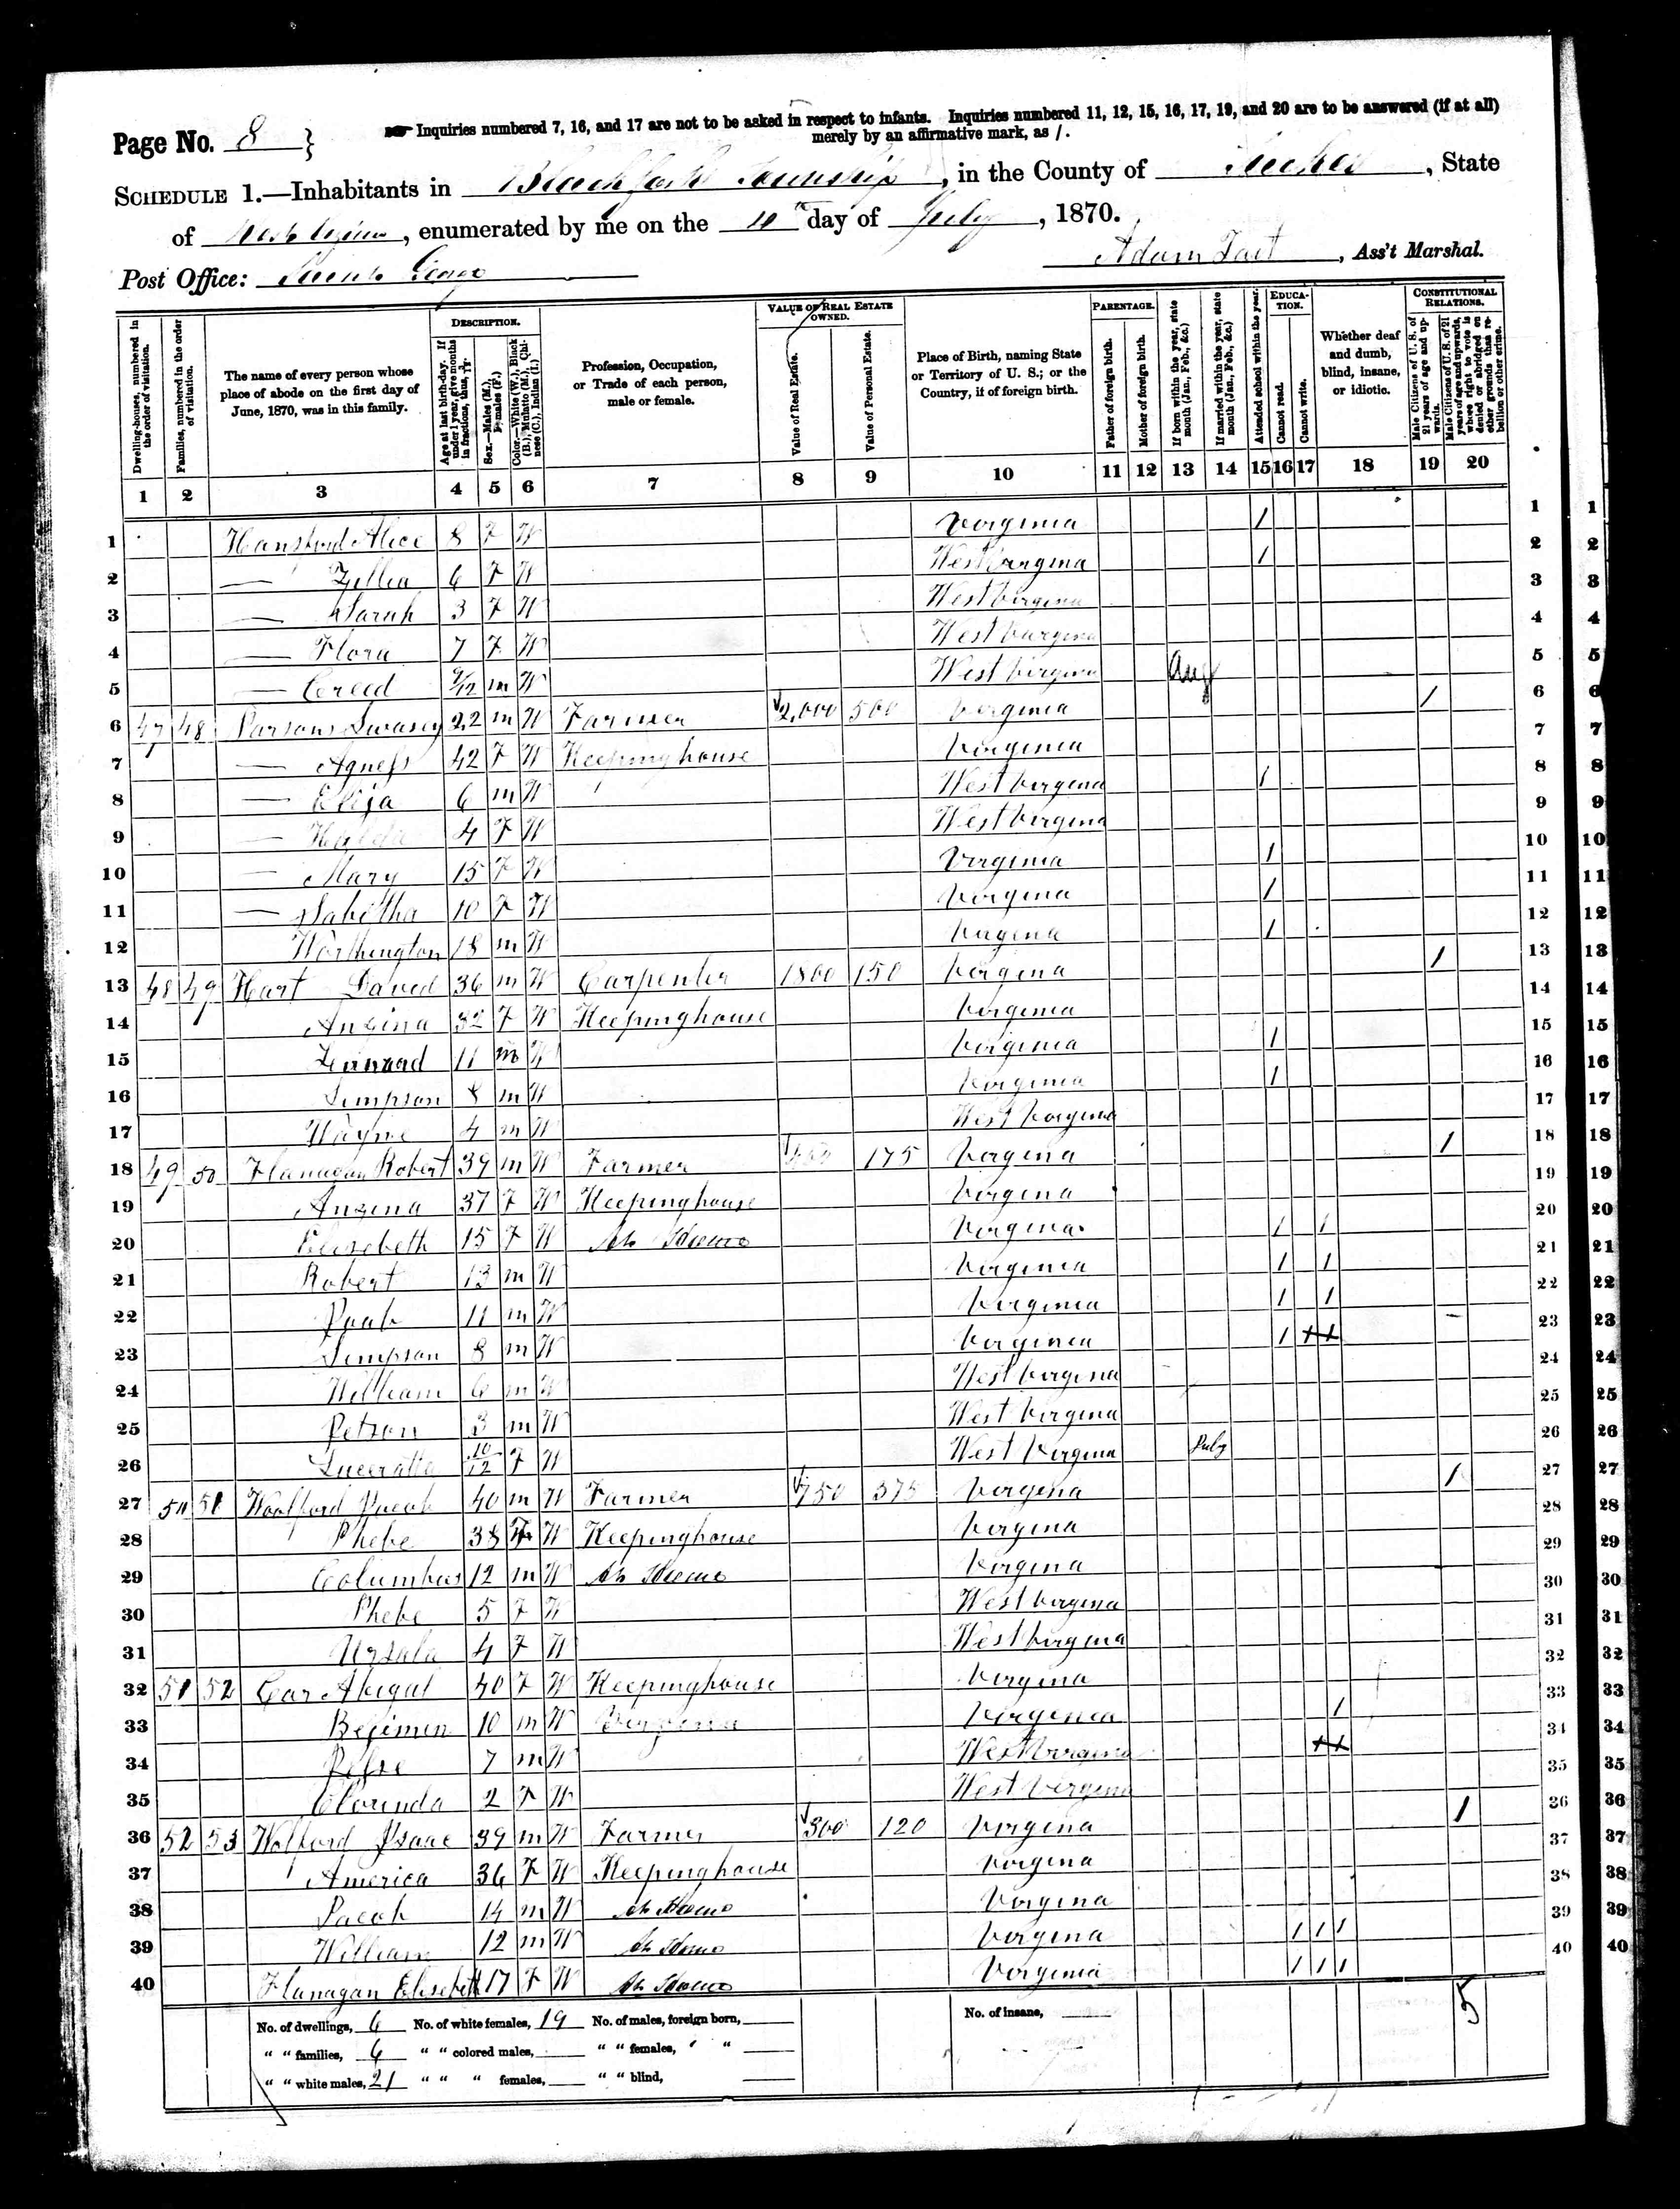 Page No. 8 }
Inquiries numbered 7, 16, and 17 are not to be asked in respect to infants. Inquiries numbered 11, 12, 15, 16, 17, 19, and 20 are to be answered (if at all)
merely by an affirmative mark, as /.
SCHEDULE 1.—Inhabitants in Township, in the County of Tucker, State
of West, enumerated by me on the day of July, 1870.
Post Office: George Adam, Ass't Marshal.
DESCRIPTION. VALUE OF REAL ESTATE OWNED. PARENTAGE. EDUCATION. CONSTITUTIONAL RELATIONS.
Dwelling-houses, numbered in the order of visitation.
Families, numbered in the order of visitation.
The name of every person whose place of abode on the first day of June, 1870, was in this family.
Age at last birth-day. If under 1 year, give months in fractions, thus,
Sex.—Males (M.), Females (F.)
Color.—White (W.), Black (B.), Mulatto (M.), Chinese (C.), Indian (I.)
Profession, Occupation, or Trade of each person, male or female.
Value of Real Estate.
Value of Personal Estate.
Place of Birth, naming State or Territory of U. S.; or the Country, if of foreign birth.
Father of foreign birth.
Mother of foreign birth.
If born within the year, state month (Jan., Feb., &c.)
If married within the year, state month (Jan., Feb., &c.)
Attended school within the year.
Cannot read.
Cannot write.
Whether deaf and dumb, blind, insane, or idiotic.
Male Citizens of U. S. of 21 years of age and upwards.
Male Citizens of U. S. of 21 years of age and upwards, whose right to vote is denied or abridged on other grounds than rebellion or other crime.
1 2 3 4 5 6 7 8 9 10 11 12 13 14 15 16 17 18 19 20
1 Hansford Alice 8 F W Virginia / 1
2 — 6 F W West Virginia / 2
3 — Sarah 3 F W West Virginia 3
4 — Flora 7 F W West Virginia 4
5 — Creed 9/12 m W West Virginia Aug 5
6 47 48 Parsons 22 m W Farmer 2,000 500 Virginia / 6
7 — Agness 42 F W Keepinghouse Virginia 7
8 — Elija 6 m W West Virginia / 8
9 — 4 F W West Virginia 9
10 — Mary 15 F W Virginia / 10
11 — Sabitha 10 F W Virginia / 11
12 Worthington 18 m W Virginia / 12
13 48 49 Hart David 36 m W Carpenter 1800 150 Virginia / 13
14 Anzina 32 F W Keepinghouse Virginia 14
15 11 m W Virginia / 15
16 Simpson 8 m W Virginia / 16
17 Wayne 4 m W West Virginia 17
18 49 50 Flanagan Robert 39 m W Farmer 175 Virginia / 18
19 Anzina 37 F W Keepinghouse Virginia 19
20 Elisebeth 15 F W At Home Virginia / / 20
21 Robert 13 m W Virginia / / 21
22 11 m W Virginia / / 22
23 Simpson 8 m W Virginia / 23
24 William 6 m W West Virginia 24
25 3 m W West Virginia 25
26 10/12 F W West Virginia July 26
27 50 51 Woolford 40 m W Farmer 750 375 Virginia / 27
28 Phebe 38 F W Keepinghouse Virginia 28
29 Columbus 12 m W At Home Virginia 29
30 Phebe 5 F W West Virginia 30
31 Ursula 4 F W West Virginia 31
32 51 52 Car Abigal 40 F W Keepinghouse Virginia 32
33 Bejimen 10 m W Virginia / 33
34 7 m W West Virginia 34
35 Clorinda 2 F W West Virginia 35
36 52 53 Wolford Isaac 39 m W Farmer 300 120 Virginia / 36
37 America 36 F W Keepinghouse Virginia 37
38 Jacob 14 m W At Home Virginia 38
39 William 12 m W At Home Virginia / / / 39
40 Flanagan Elisebeth 17 F W At Home Virginia / / / 40
No. of dwellings, 6 No. of white females, 19 No. of males, foreign born, No. of insane, 5
" " families, 6 " " colored males, " " females, " "
" " white males, 21 " " " females, " " blind,